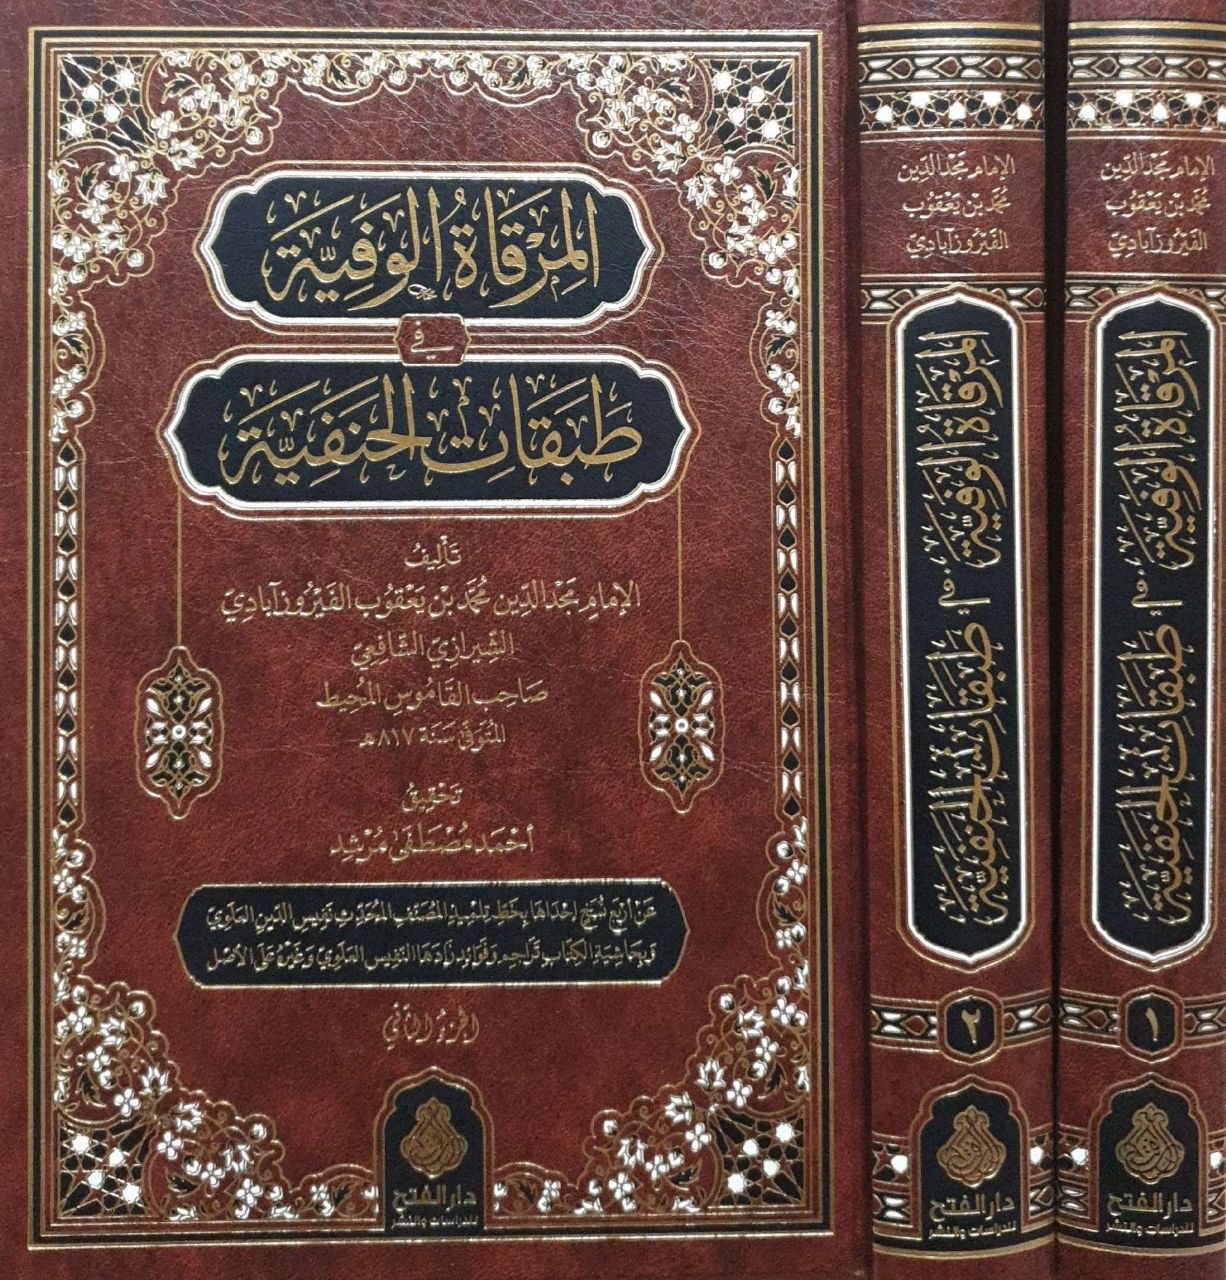 المِرْقَاةُ الوَفِيَّة
في
طَبَقَاتِ الحَنَفِيَّة
تَأْلِيفُ
الإِمَامِ مَجْدِ الدِّين مُحَمَّد بْن يَعْقُوب الفَيْرُوزآبَادِيّ
الشِّيرَازِيّ الشَّافِعِيّ
صَاحِب القَامُوسِ المُحِيط
المُتَوَفَّى سَنَة ٨١٧هـ
تَحْقِيقُ
أَحْمَد مُصْطَفَى مُرْشِد
عَنْ أَرْبَعِ نُسَخٍ إِحْدَاهَا بِخَطِّ تِلْمِيذِ المُصَنِّفِ المُحَدِّثِ نَفِيسِ الدِّينِ العَلَوِيّ
وَبِحَاشِيَةِ الكِتَابِ تَرَاجِم وَفَوَائِد زَادَهَا النَّفِيس العَلَوِيّ وَغَيْرُهُ عَلَى الأَصْل
الجزء الثاني
دار الفتح
للدراسات والنشر
الإمام مجد الدّين
محمّد بن يَعْقُوب
الفَيْرُوزآبَادِيّ
المِرْقَاةُ الوَفِيَّة في طَبَقَاتِ الحَنَفِيَّة
٢
دار الفتح
للدراسات والنشر
الإمام مجد الدّين
محمّد بن يَعْقُوب
الفَيْرُوزآبَادِيّ
المِرْقَاةُ الوَفِيَّة في طَبَقَاتِ الحَنَفِيَّة
١
دار الفتح
للدراسات والنشر